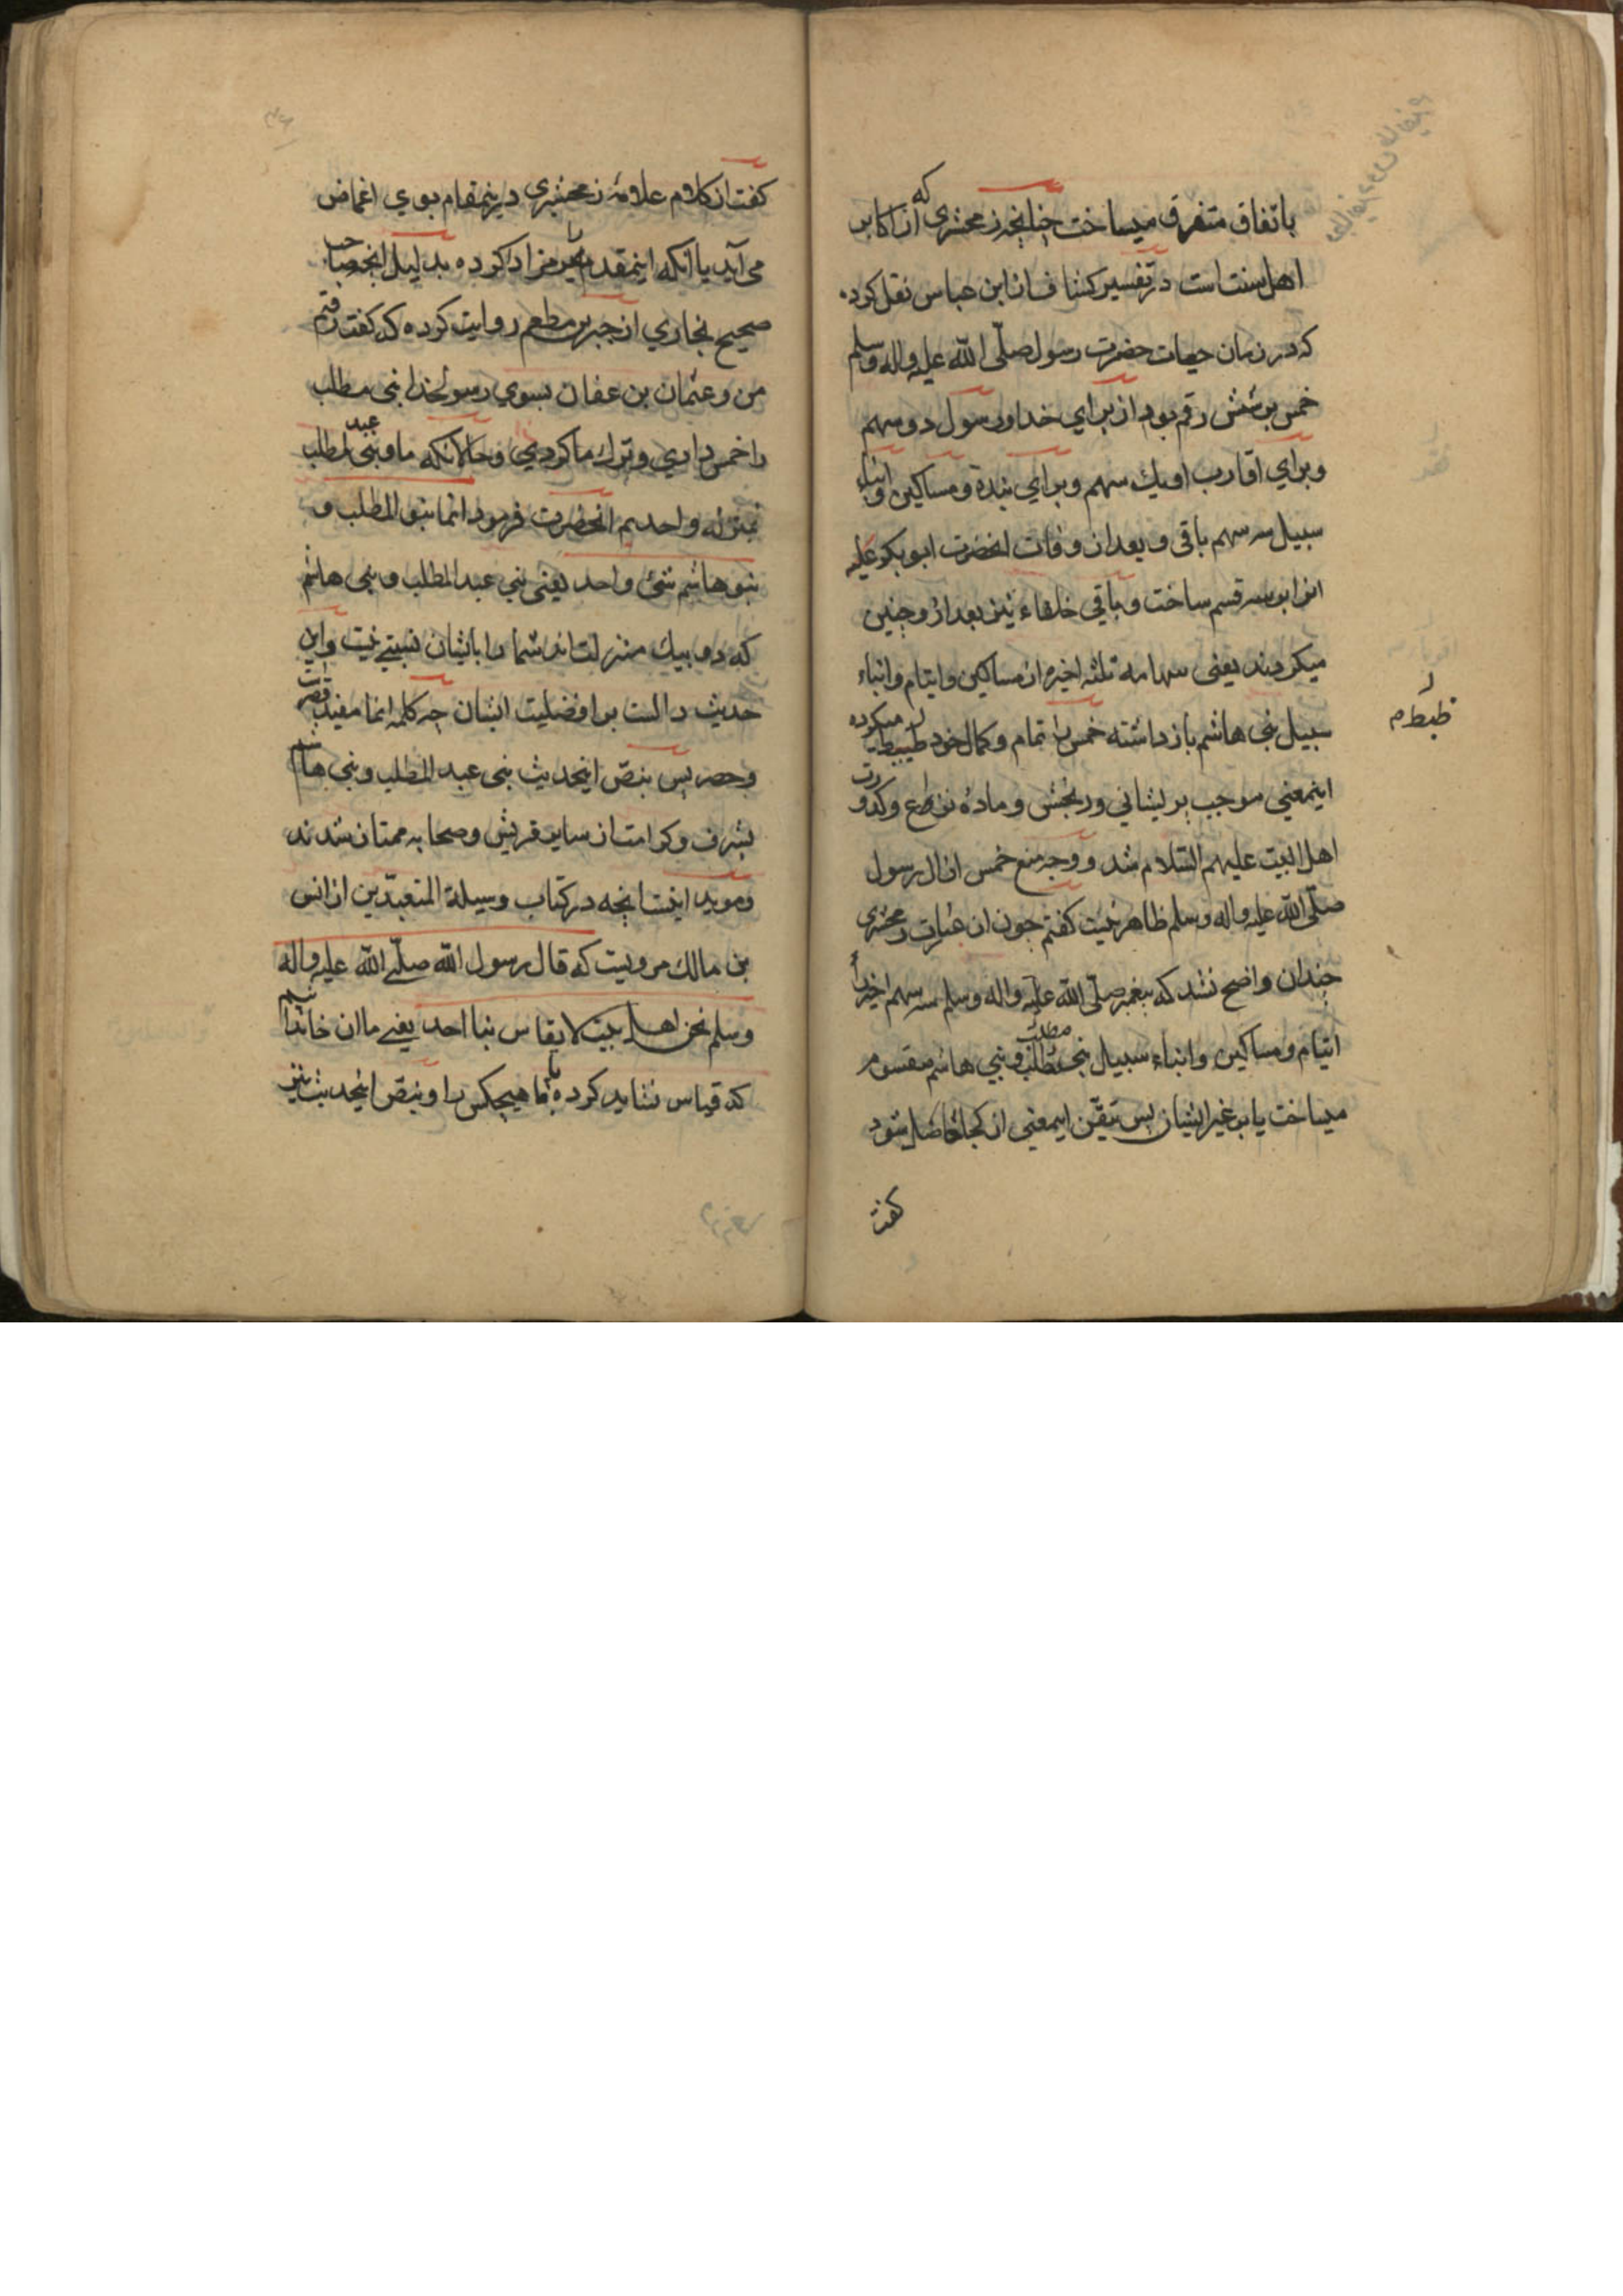 باتفاق متفرق میساخت چنانچه زمحشری که از اکابر
اهل سنت است در تفسیر کشاف از ابن عباس نقل کرده
که در زمان حیات حضرت رسول صلّی الله علیه واله وسلم
خمس بر شش رقم بود از برای خدا و رسول دو سهم
وبرای اقارب او یك سهم وبرای بنده ومساکین وابناء
سبیل سه سهم باقی وبعد از وفات انحضرت ابوبکر علیه
انرا بر سه قسم ساخت وباقی خلفاء نیز بعد از و چنین
میکردند یعنی سهامه ثلثه اخیره از مساکین وایتام وابناء
سبیل بنی هاشم باز داشته خمس را تمام وکمال خود میکرده
اینمعنی موجب پریشانی ورنجش وماده نزاع وکدورت
اهل البیت علیهم السّلام شد ووجه منع خمس از ال رسول
صلّی الله علیه واله وسلم ظاهر نیست کفتم چون از عبارت زمحشری
چندان واضح نشد که پیغمبر صلّی الله علیه واله وسلم سه سهم اخیر را
ایتام ومساکین وابناء سبیل بنی مطلب وبنی هاشم مقسوم
میساخت یا بر غیر ایشان پس تیقّن اینمعنی از کجا حاصل شود
کفت
ضبط م
کفت از کلام علامهٔ زمحشری درینمقام بوی اغماض
می آید یا آنکه اینمقدمه را نیز مراد کرده بدلیل انچه صاحب
صحیح بخاری از جبر بن مطعم روایت کرده که کفت رفتم
من وعثمان بن عفان بسوی رسولخدا بنی مطلب
را خمس دادی وترك ما کردی وحالانکه ما وبنی عبد المطلب
بمنزله واحدیم انحضرت فرمود انما بنو المطلب و
بنو هاشم شئ واحد یعنی بنی عبد المطلب وبنی هاشم
که دو بیك منزلت اند شما را باایشان نسبتی نیست واین
حدیث دالست بر افضلیت ایشان چه کلمه انما مفید قصر است
وحصر پس بنصّ اینحدیث بنی عبد المطلب وبنی هاشم
بشرف وکرامت از سایر قریش وصحابه ممتاز شدند
ومویّد اینست انچه در کتاب وسیلة المتعبّدین از انس
بن مالك مرویست که قال رسول الله صلّی الله علیه واله
وسلم نحن اهل بیت لا یقاس بنا احد یعنی ما ان خاندانیم
که قیاس نشاید کرده با ما هیچکس را وبنصّ اینحدیث نیز